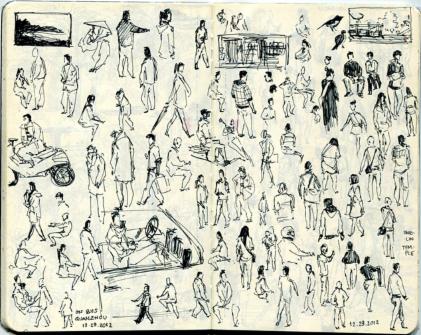 ON BUS
QUANZHOU
12.29.2012
SHAO-
LIN
TEM-
PLE
12.29.2012